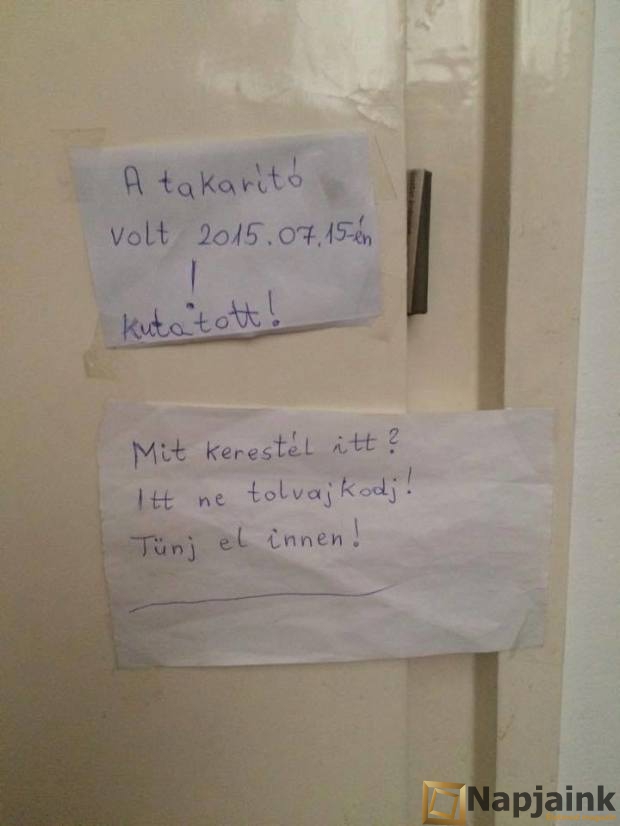 A takarító
volt 2015.07.15-én
!
kutatott!
Mit kerestél itt?
Itt ne tolvajkodj!
Tünj el innen!
Napjaink